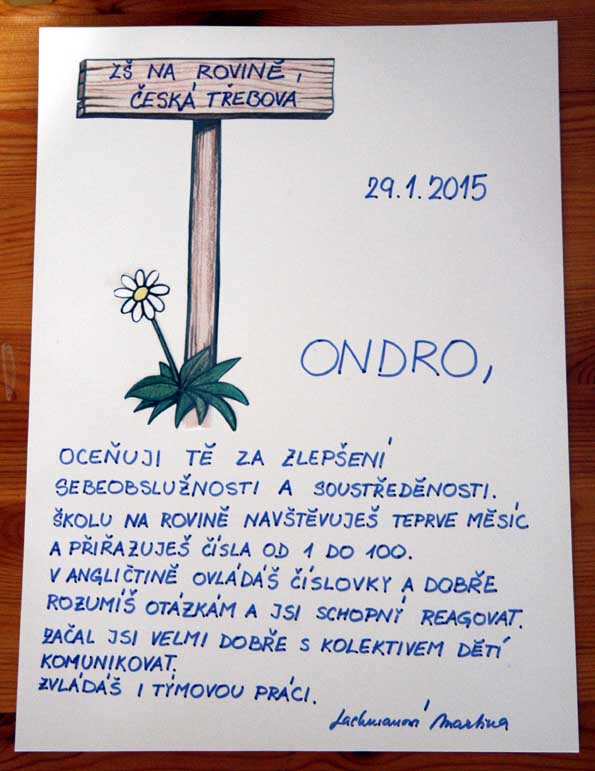 ZŠ NA ROVINĚ,
ČESKÁ TŘEBOVA
29.1.2015
ONDRO,
OCEŇUJI TĚ ZA ZLEPŠENÍ
SEBEOBSLUŽNOSTI A SOUSTŘEDĚNOSTI.
ŠKOLU NA ROVINĚ NAVŠTĚVUJEŠ TEPRVE MĚSÍC
A PŘIŘAZUJEŠ ČÍSLA OD 1 DO 100.
V ANGLIČTINĚ OVLÁDÁŠ ČÍSLOVKY A DOBŘE
ROZUMÍŠ OTÁZKÁM A JSI SCHOPNÝ REAGOVAT.
ZAČAL JSI VELMI DOBŘE S KOLEKTIVEM DĚTÍ
KOMUNIKOVAT.
ZVLÁDÁŠ I TÝMOVOU PRÁCI.
Lachmanová Martina